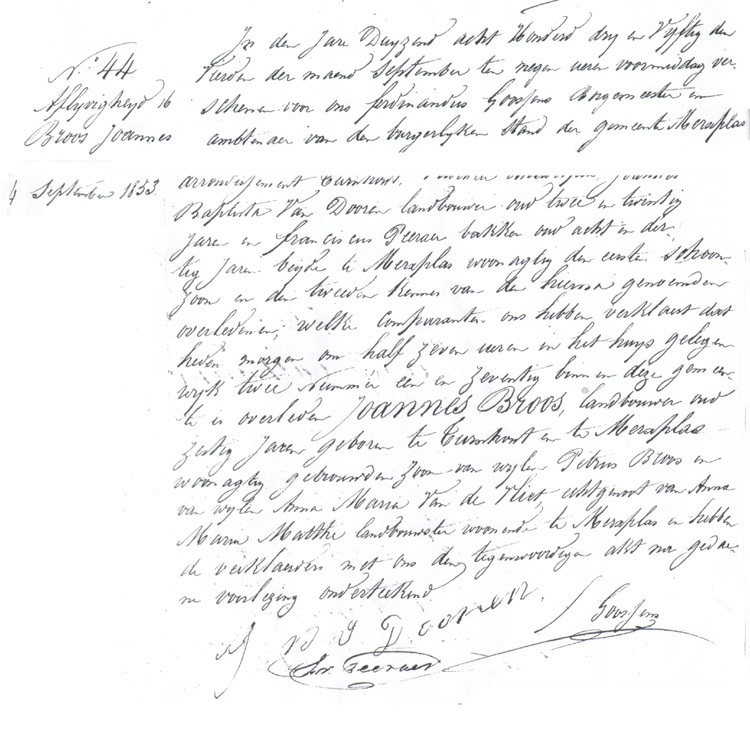 N.° 44
Aflyvigheyd 16
Broos Joannes
4 September 1853.
In den Jare Duyzend acht Honderd dry en Vyftig den
vierden der maend September ten negen ueren voormiddag ver-
schenen voor ons ferdinandus Goossens Borgemeester en
ambtenaer van den burgerlyken stand der gemeente Merxplas
arrondissement Turnhout,
Baptista Van Dooren landbouwer oud twee en twintig
Jaren en franciscus Peeraer bakker oud acht en der-
tig Jaren beyde te Merxplas woonagtig den eersten schoon-
zoon en den tweeden kennis van de hierna genoemden
overledenen; welke comparanten ons hebben verklaert dat
heden morgen om half zeven ueren in het huys gelegen
wyk twee Nummer een en zeventig binnen deze gemeen-
te is overleden Joannes Broos, landbouwer oud
zestig Jaren geboren te Turnhout en te Merxplas
woonagtig getrouwden zoon van wylen Petrus Broos en
van wylen Anna Maria Van de Vliet echtgenoot van Anna
Maria Matthe landbouwster woonende te Merxplas en hebben
de verklaerders met ons den tegenwoordigen akt na gedae-
ne voorlezing onderteekend
Dooren
Goossens
Fr. Peeraer